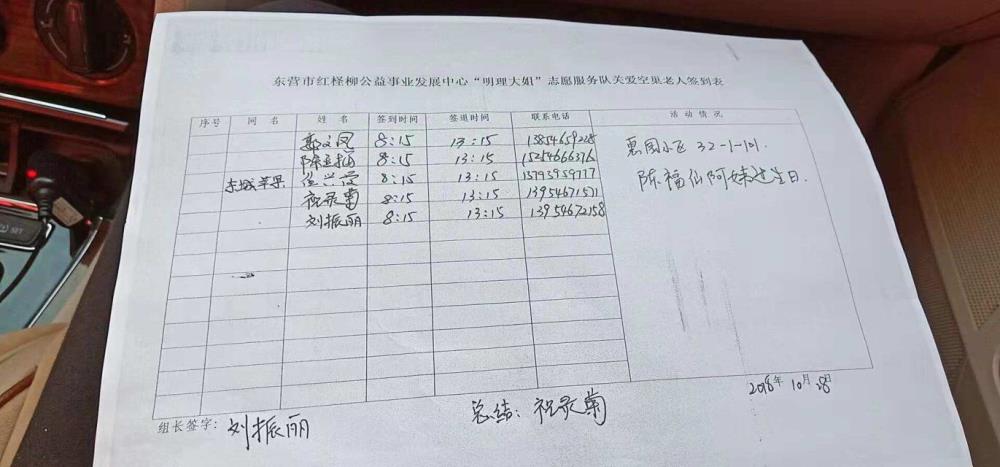 东营市红柽柳公益事业发展中心“明理大姐”志愿服务队关爱空巢老人签到表
序号 网 名 姓 名 签到时间 签退时间 联系电话 活动情况
郭文凤 8:15 13:15 13854659228
8:15 13:15 15254666376
东城苹果 8:15 13:15 13793959717
祝录菊 8:15 13:15 13954671571
刘振丽 8:15 13:15 13954672158
惠园小区 32-1-101.
陈福仙阿姨过生日.
2018年10月28日
组长签字: 刘振丽
总结: 祝录菊